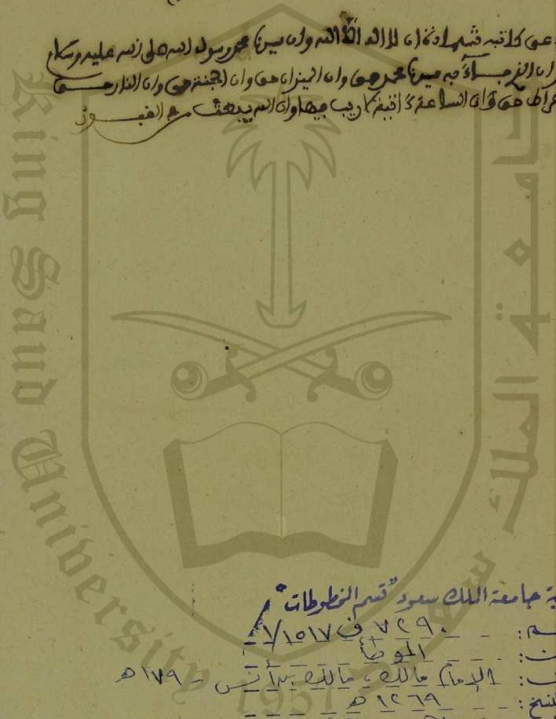 عى كاتبه شهادة ان لا اله الا الله وان سيدنا محمد رسول الله صلى الله عليه وسلم
ان الذي جاء به سيدنا محمد حق وان الميزان حق وان الجنة حق وان النار حق
حق وان الساعة ءاتية لا ريب فيها وان الله يبعث من القبور
King Saud University
جامعة الملك سعود
1957
ة جامعة الملك سعود "قسم المخطوطات"
م: ٧٢٩٠ ف ١/١٥١٧
ن: الموطأ
ف: الإمام مالك، مالك بن أنس - ١٧٩ هـ
لنسخ: ١٢٦٩ هـ